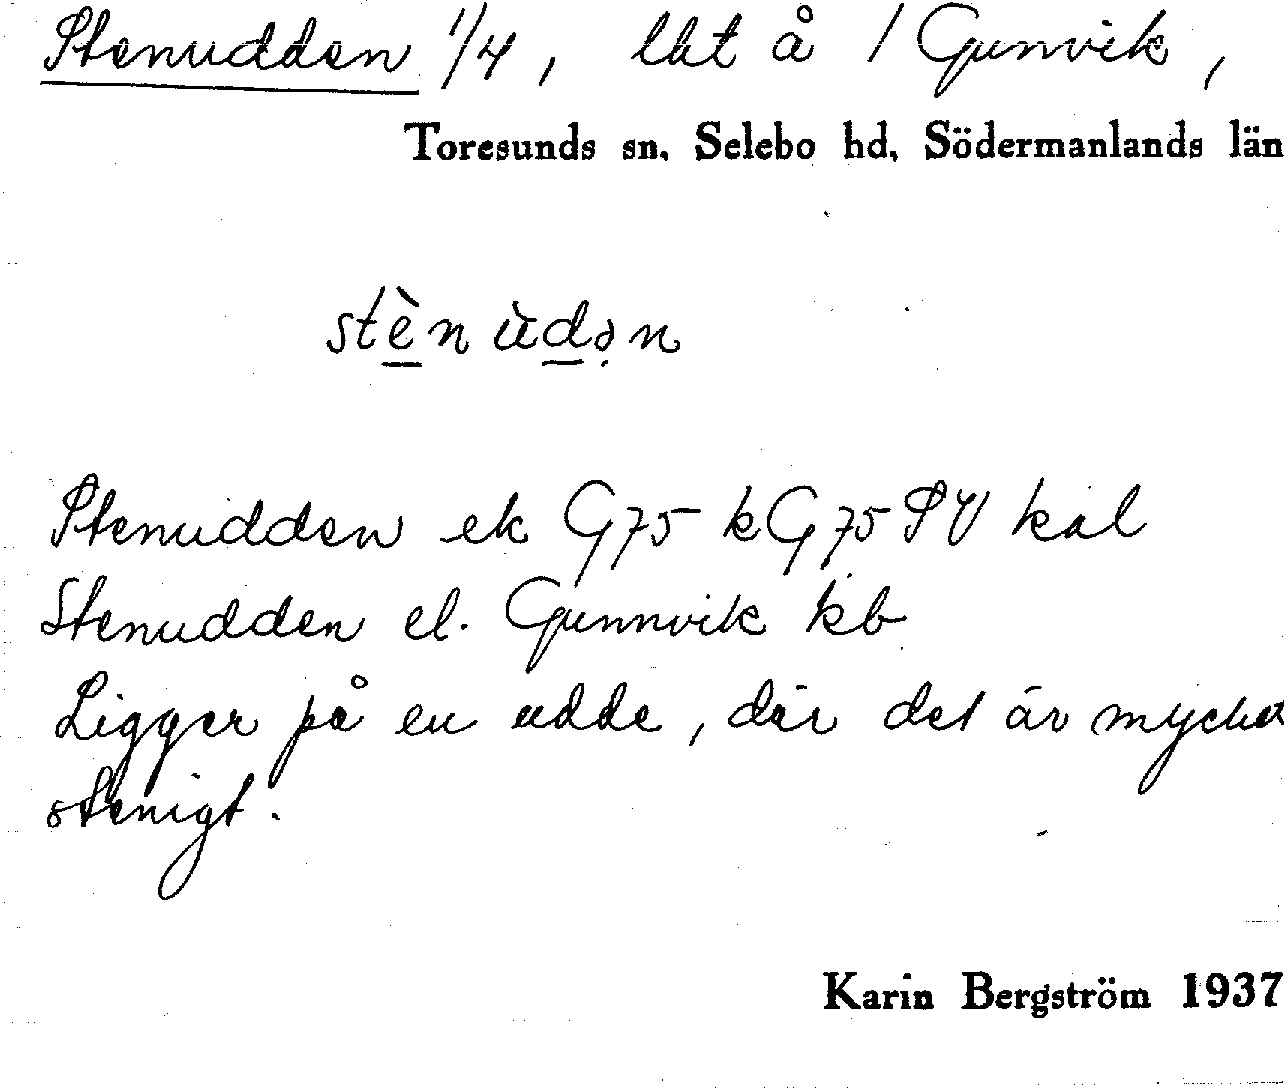 Stenudden 1/4, lht å 1 Gunvik,
Toresunds sn, Selebo hd, Södermanlands län
stè̱n ùḏə̣n
Stenudden ek G75 kG75 SV kal
Stenudden el. Gunnvik kb
Ligger på en udde, där det är mycket
stenigt.
Karin Bergström 1937